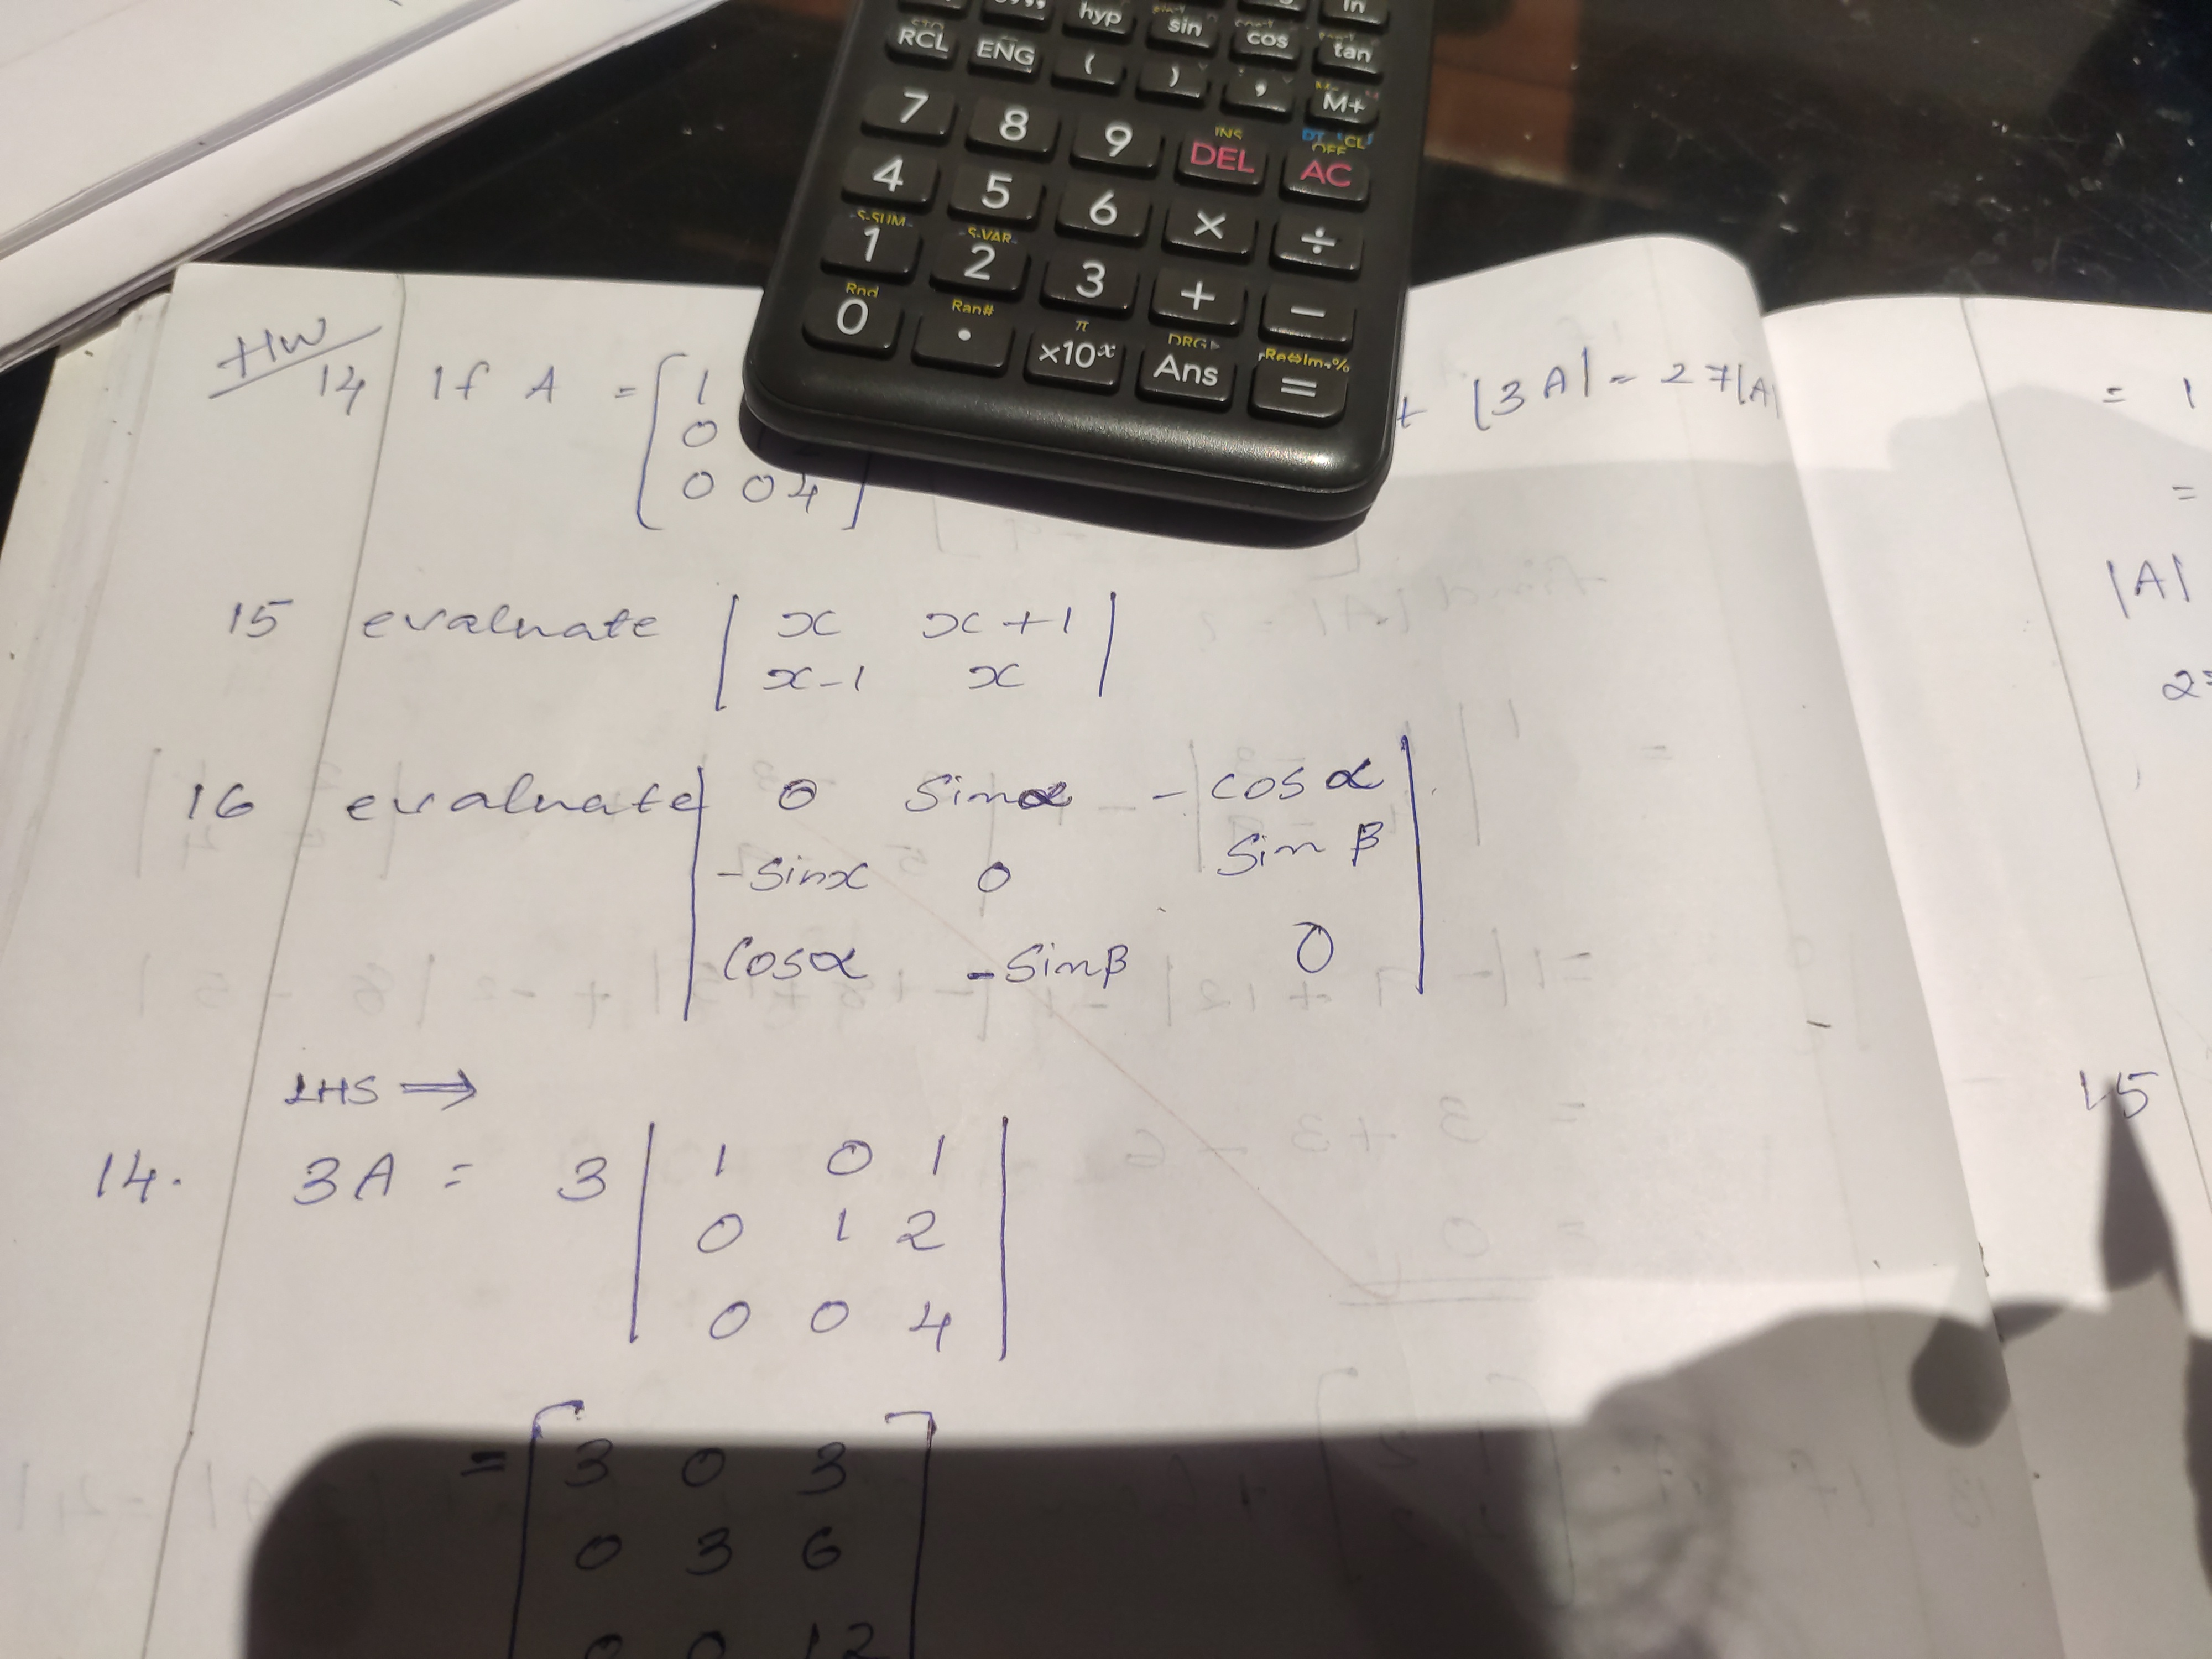 hyp sin cos tan
RCL ENG ( ) , M+
7 8 9 DEL AC
INS
OFF
4 5 6 × ÷
S-SUM S-VAR
1 2 3 + −
Rnd Ran# π DRG▶
0 . ×10ˣ Ans =
HW
14 If A = [ 1
|3A| = 27|A|
0
0 0 4 ]
15 evaluate | x x+1 |
x-1 x
16 evaluate | 0 Sinα -cosα |
-Sinx 0 Sin β
Cosα -Sinβ 0
LHS ⟹
14. 3A = 3 | 1 0 1 |
0 1 2
0 0 4
= [ 3 0 3 ]
0 3 6
0 0 12
= 1
=
|A|
15